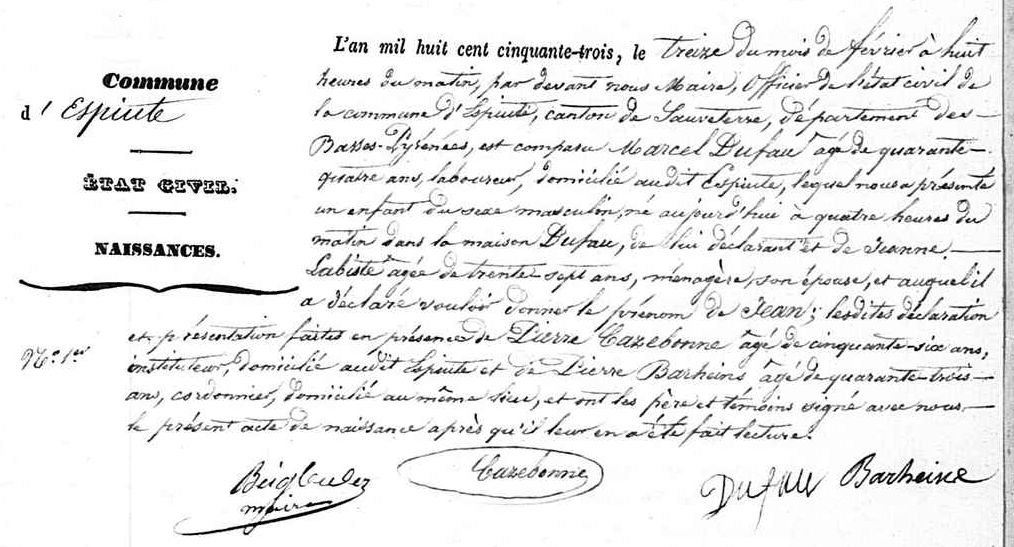 Commune
d' Espiute
ÉTAT CIVIL.
NAISSANCES.
N.º 1.er
L'an mil huit cent cinquante-trois, le treize du mois de février à huit
heures du matin, par devant nous Maire, Officier de l'état civil de
la commune d'Espiute, canton de Sauveterre, département des
Basses-Pyrénées, est comparu Marcel Dufau âgé de quarante-
quatre ans, laboureur, domicilié audit Espiute, lequel nous a présenté
un enfant du sexe masculin, né aujourd'hui à quatre heures du
matin dans la maison Dufau, de lui déclarant et de Jeanne
Labiste âgée de trente-sept ans, ménagère, son épouse, et auquel il
a déclaré vouloir donner le prénom de Jean; lesdites déclaration
et présentation faites en présence de Pierre Cazebonne âgé de cinquante-six ans,
instituteur, domicilié audit Espiute et de Pierre Barheine, âgé de quarante-trois
ans, cordonnier, domicilié au même lieu, et ont les père et témoins signé avec nous
le présent acte de naissance après qu'il leur en a été fait lecture.
maire
Cazebonne
Dufau
Barheine